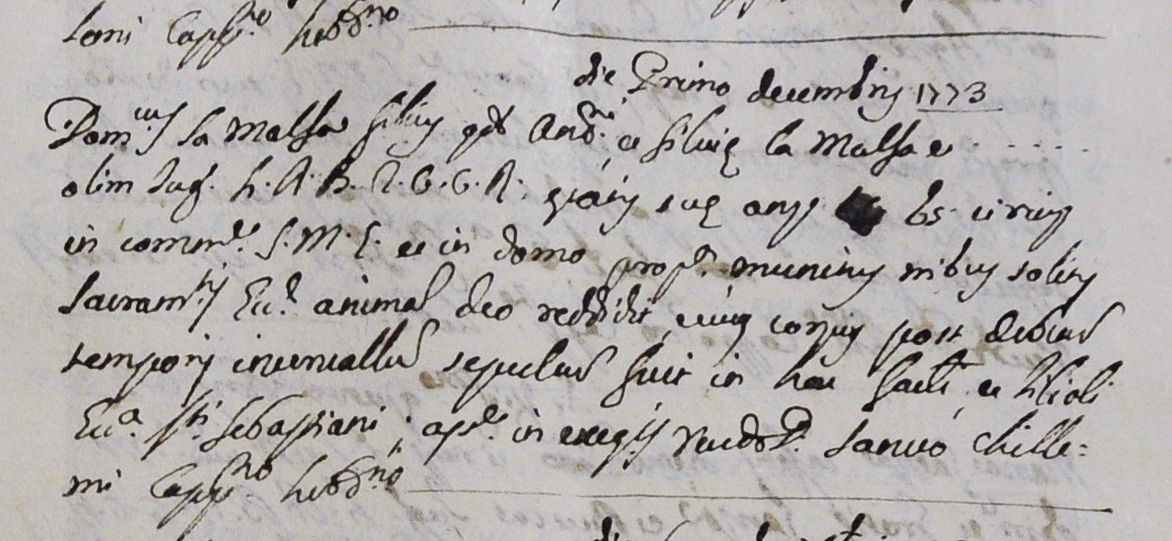 loni Capp.no hebd.rio
die Primo decembris 1773
Dom.cus la Malfa filius qd And.ae et Silviae la Malfa e . . . . .
olim Jug. h. A. B. T. C. C. R. etatis suae ann. 65 cirius
in comm.e S. M. E. et in domo prop.a munitus ribus solitis
Sacram.tis Ecc.ae animam deo reddidit, cuius corpus post debitum
temporis intervallum sepultum fuit in hac Sac. et filiali
Ecc.a S.ti Sebastiani; ass.te in exequis Revdo D. Sancto Chille=
mi Capp.no hebd.rio